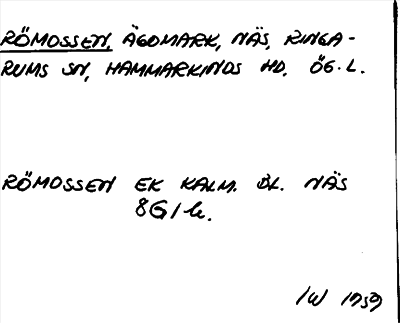 RÖMOSSEN, ÄGOMARK, NÄS, RINGA-
RUMS SN, HAMMARKINDS HD. ÖG. L.
RÖMOSSEN EK KALM. BL. NÄS
8G1h.
IW 1959